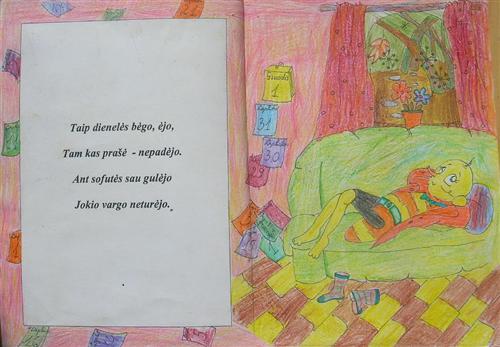 Taip dienelės bėgo, ėjo,
Tam kas prašė - nepadėjo.
Ant sofutės sau gulėjo
Jokio vargo neturėjo.
1
31
30
29